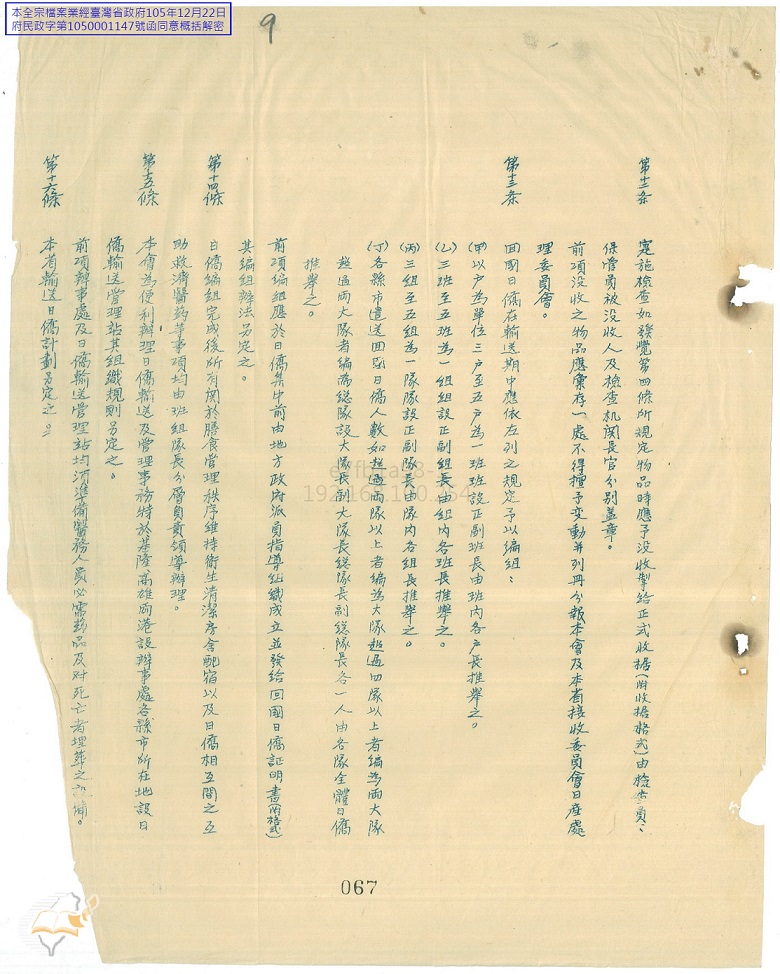 本全宗檔案業經臺灣省政府105年12月22日
府民政字第1050001147號函同意概括解密
9
第十二条
寔施檢查如發覺第四條所規定物品時應予没收掣給正式收据(附收据格式)由檢查員、
保管員被没收人及檢查机関長官分別蓋章。
前項没收之物品應彙存一處不得擅予変動並列冊分報本會及本省接收委員會日産處
理委員會。
第十三条
囬國日僑在輸送期中應依左列之規定予以編組：
(甲)以户為單位三户至五户為一班班設正副班長由班内各户長推舉之。
(乙)三班至五班為一組組設正副組長由組内各班長推舉之。
(丙)三組至五組為一隊隊設正副隊長由隊内各組長推舉之。
(丁)各縣市遣送囬國日僑人數如超過両隊以上者編為大隊超過四隊以上者編為両大隊
超過両大隊者編為総隊設大隊長副大隊長総隊長副総隊長各一人由各隊全體日僑
推舉之。
前項編組應於日僑集中前由地方政府派員指導組織成立並發給囬國日僑証明書(附格式)
其編組辦法另定之。
第十四條
日僑編組完成後所有関於膳食管理秩序維持衛生清潔房舍配宿以及日僑相互間之互
助救濟醫药等事項均由班組隊長分層負責領導辦理。
第十五條
本會為便利辦理日僑輸送及管理事務特於基隆高雄両港設辦事處各縣市所在地設日
僑輸送管理站其組織規則另定之。
前項辦事處及日僑輸送管理站均須準備醫務人員必需药品及对死亡者埋葬之設備。
第十六條
本省輸送日僑計劃另定之。
067